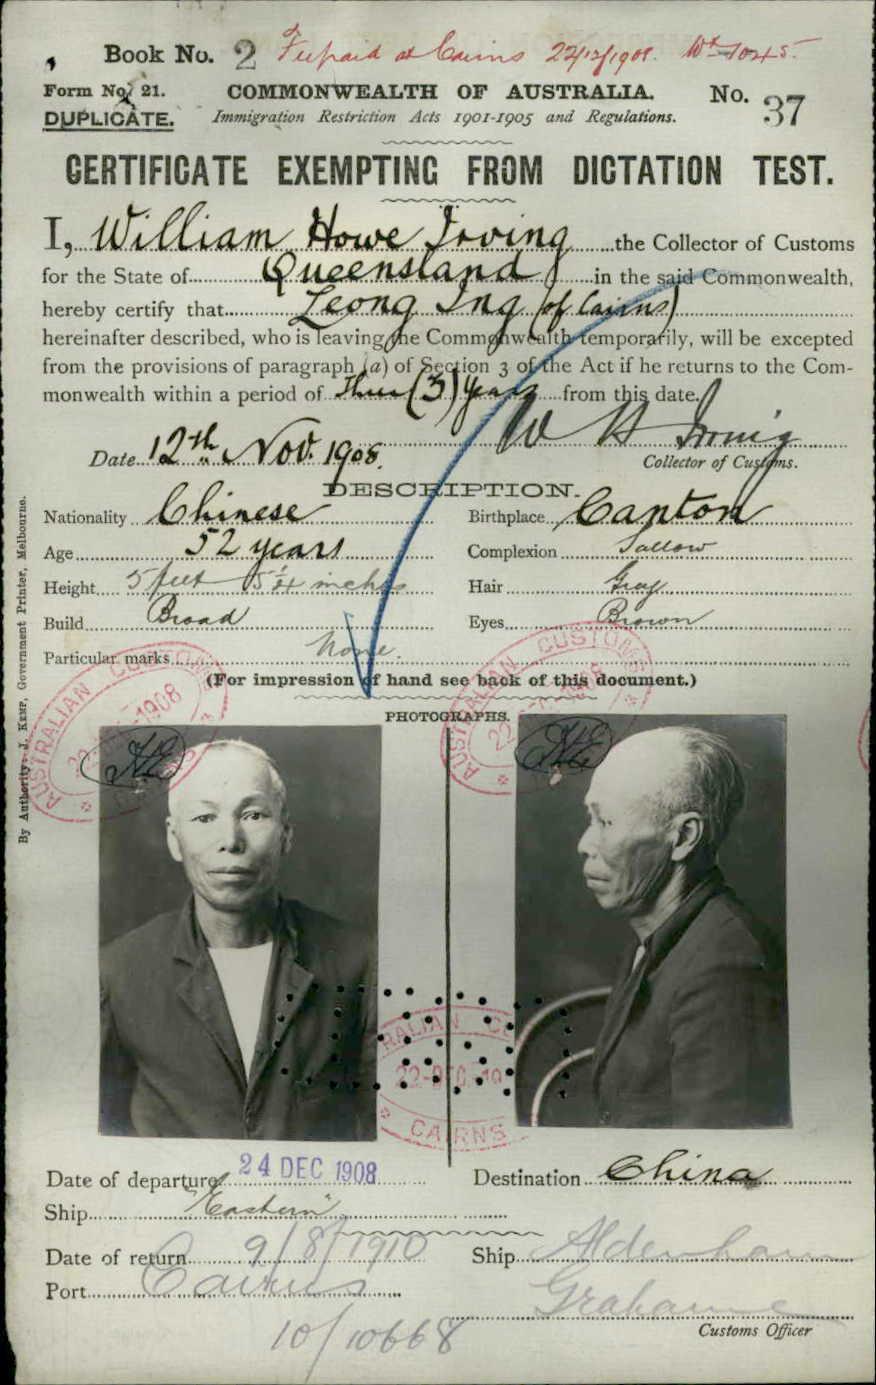 Book No. 2 Fee paid at Cairns 22/12/1908.
Form No. 21. COMMONWEALTH OF AUSTRALIA. No. 37
DUPLICATE. Immigration Restriction Acts 1901-1905 and Regulations.
CERTIFICATE EXEMPTING FROM DICTATION TEST.
I, William Howe Irving the Collector of Customs
for the State of Queensland in the said Commonwealth,
hereby certify that Leong Ing (of Cairns)
hereinafter described, who is leaving the Commonwealth temporarily, will be excepted
from the provisions of paragraph (a) of Section 3 of the Act if he returns to the Com-
monwealth within a period of Three (3) years from this date.
W H Irving
Date 12th Nov. 1908. Collector of Customs.
DESCRIPTION.
Nationality Chinese Birthplace Canton
Age 52 years Complexion Sallow
Height 5 feet inches Hair Gray
Build Broad Eyes Brown
Particular marks None.
(For impression of hand see back of this document.)
PHOTOGRAPHS.
AUSTRALIAN CUSTOMS 1908
AUSTRALIAN CUSTOMS 22 1908
RALIAN C
22-DEC-19
CAIRNS
Date of departure 24 DEC 1908 Destination China
Ship "Eastern"
Date of return 9/8/1910 Ship Aldenham
Port Cairns Grahame
10/10668 Customs Officer
By Authority: J. KEMP, Government Printer, Melbourne.